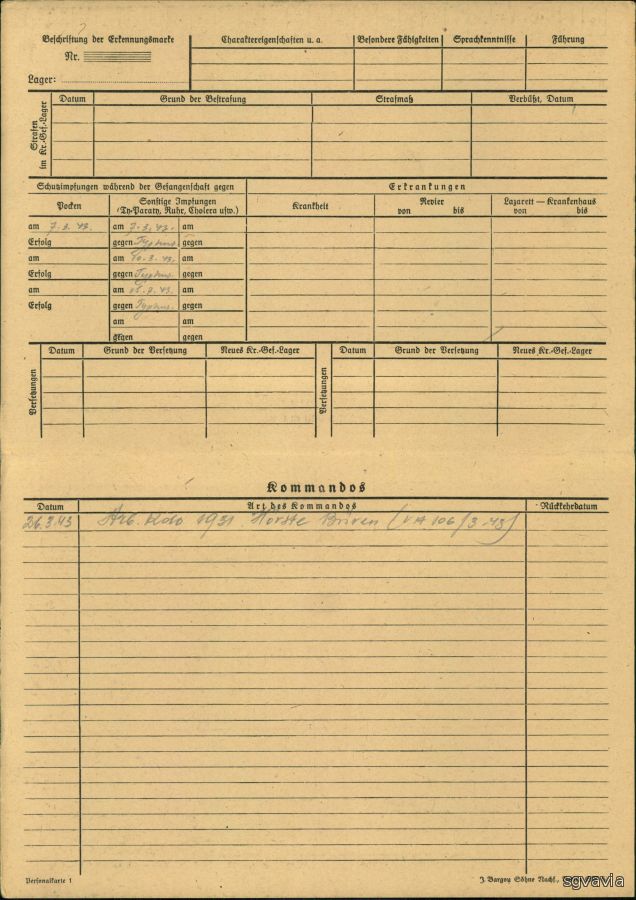 Beschriftung der Erkennungsmarke
Nr.
Lager:
Charaktereigenschaften u. a.
Besondere Fähigkeiten
Sprachkenntnisse
Führung
Strafen im Kr.-Gef.-Lager
Datum
Grund der Bestrafung
Strafmaß
Verbüßt, Datum
Schutzimpfungen während der Gefangenschaft gegen
Erkrankungen
Pocken
Sonstige Impfungen
(Ty-Paraty, Ruhr, Cholera usw.)
Krankheit
Revier
von bis
Lazarett — Krankenhaus
von bis
am 7.3.43. am 7.3.43. am
Erfolg gegen Typhus. gegen
am am 10.3.43. am
Erfolg gegen Typhus. gegen
am am 43. am
Erfolg gegen Typhus. gegen
am am
gegen gegen
Versetzungen
Datum
Grund der Versetzung
Neues Kr.-Gef.-Lager
Versetzungen
Datum
Grund der Versetzung
Neues Kr.-Gef.-Lager
Kommandos
Datum
Art des Kommandos
Rückkehrdatum
26.3.43 Arb. Kdo 1931 Hörste Büren
Personalkarte 1
J. Bargou Söhne Nachf.,
sgvavia